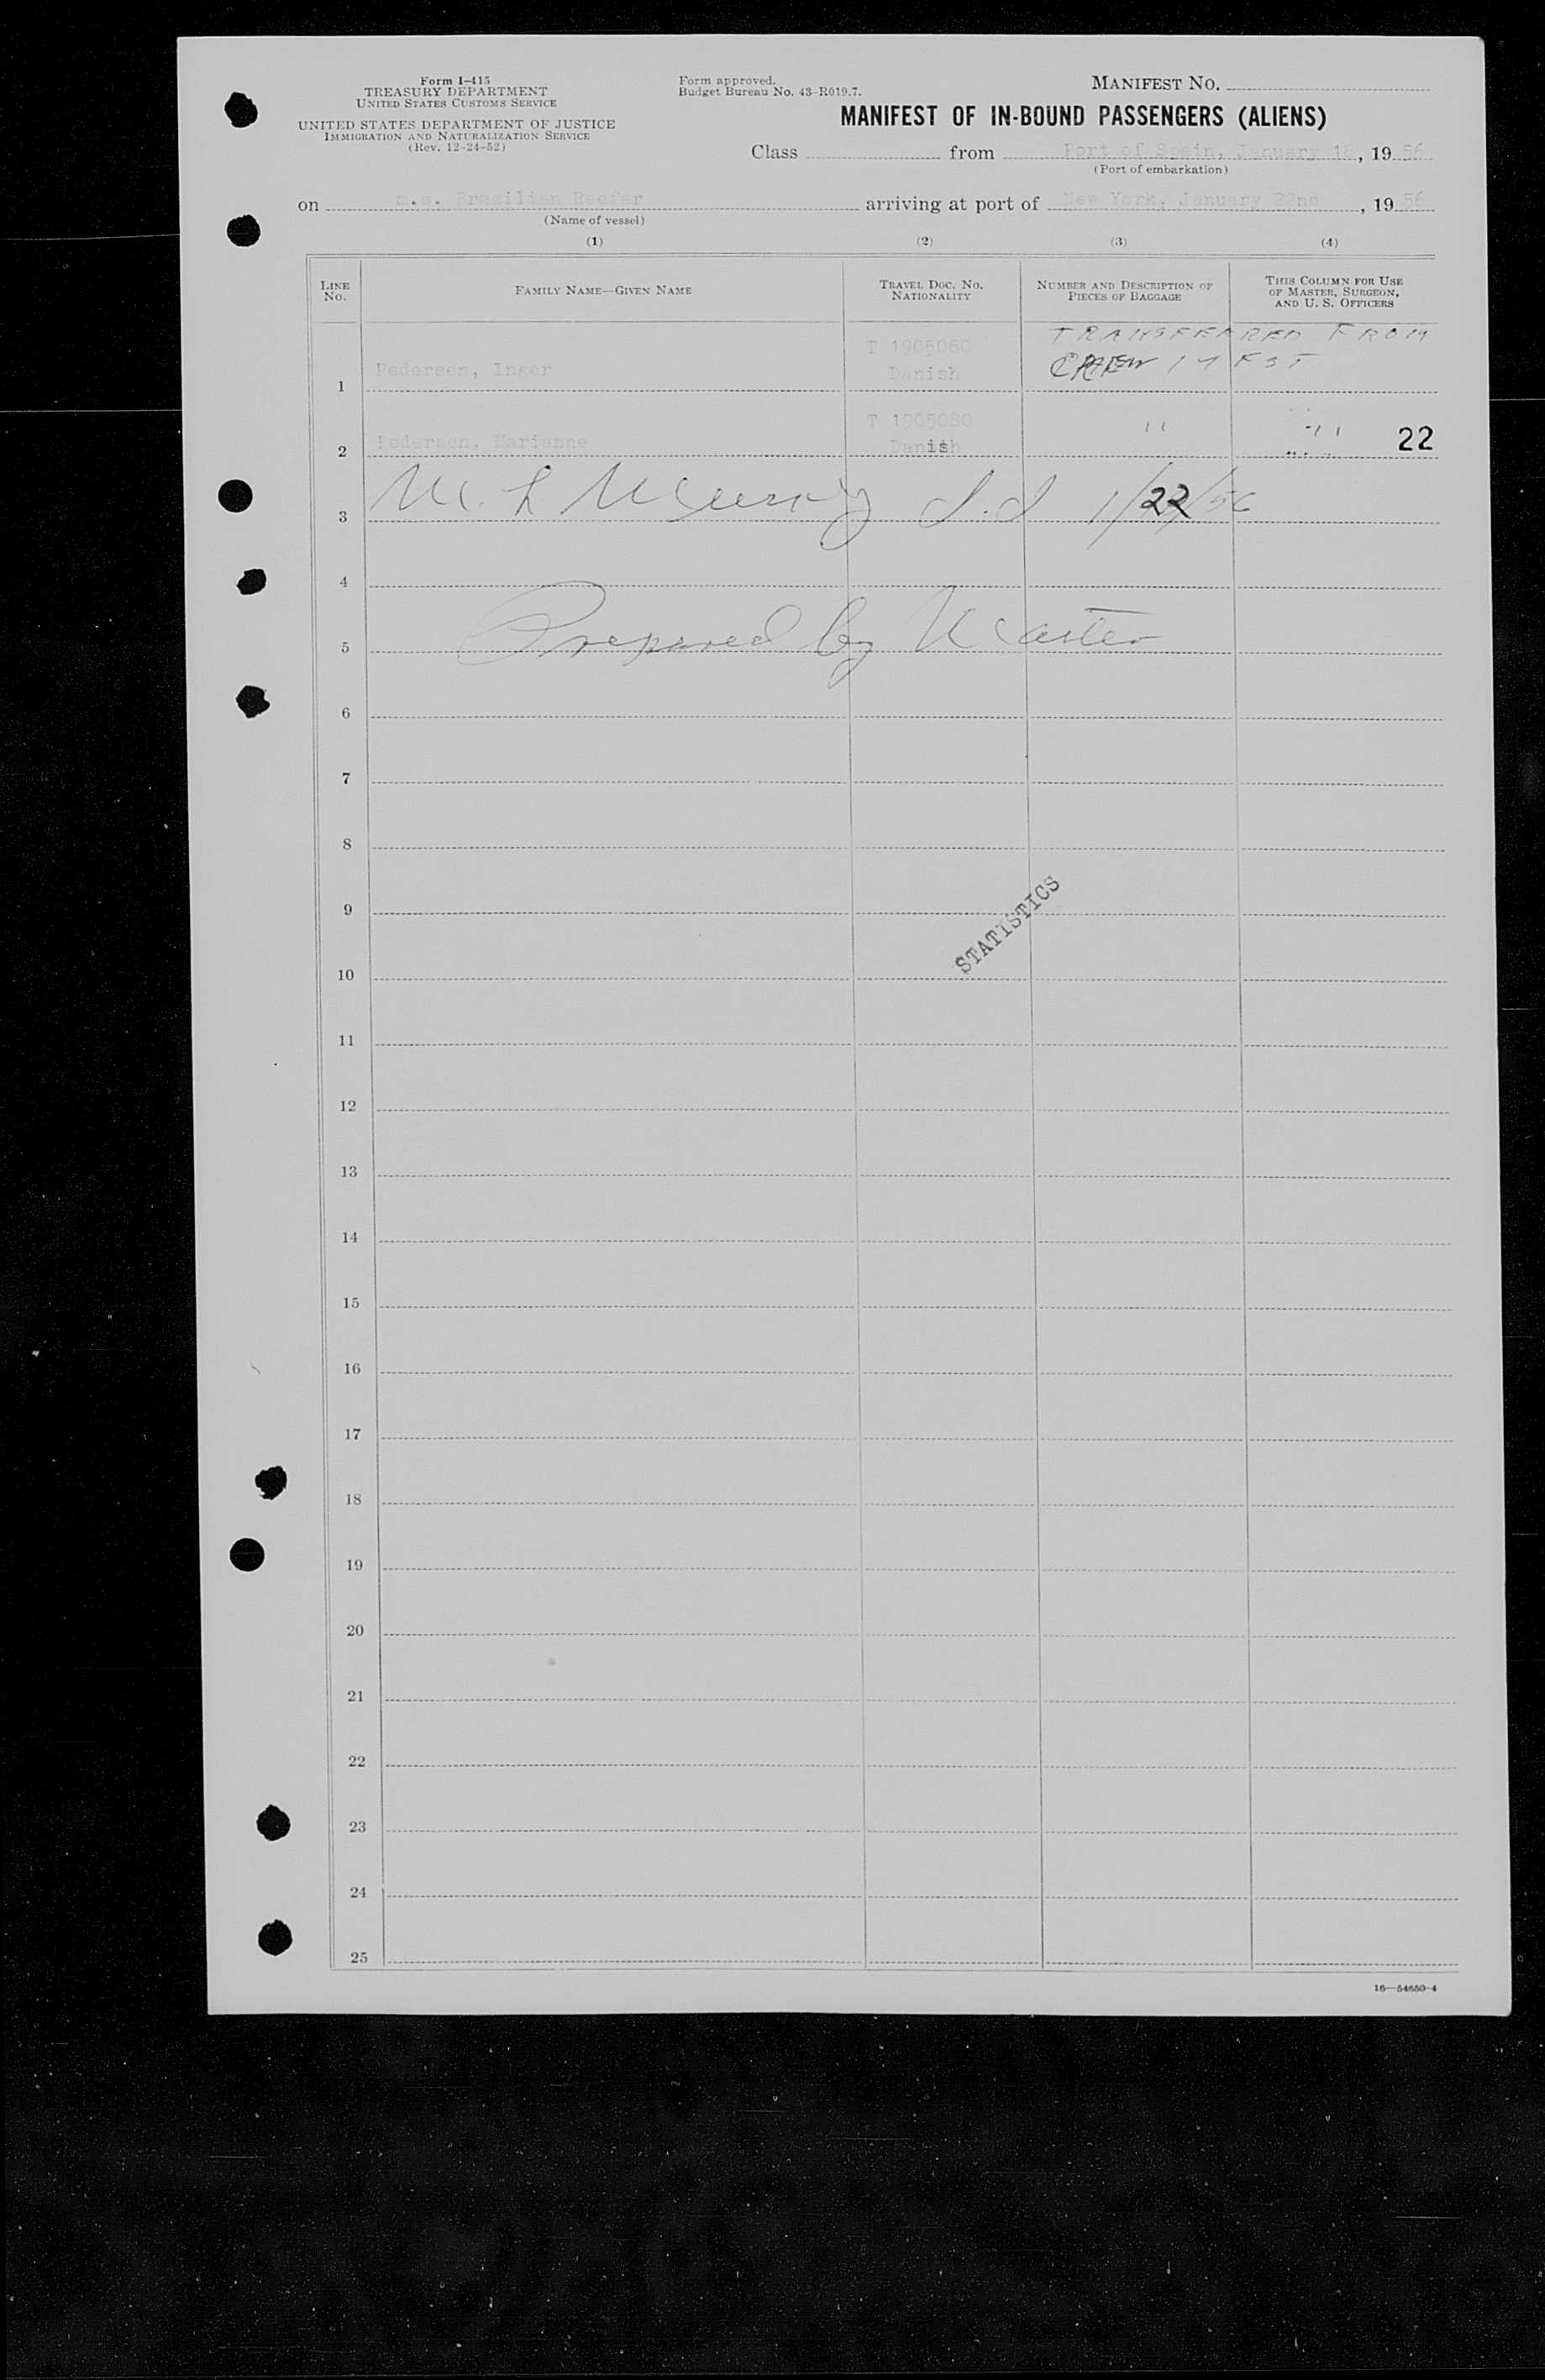 Form I-415
TREASURY DEPARTMENT
UNITED STATES CUSTOMS SERVICE
UNITED STATES DEPARTMENT OF JUSTICE
IMMIGRATION AND NATURALIZATION SERVICE
(Rev. 12-24-52)
Form approved.
Budget Bureau No. 43-R019.7.
MANIFEST NO.
MANIFEST OF IN-BOUND PASSENGERS (ALIENS)
Class from Port of Spain, January 18, 19 56
(Port of embarkation)
on m.s. Brazilian Reefer arriving at port of New York, January 22nd, 19 56
(Name of vessel)
(1) (2) (3) (4)
LINE NO.
FAMILY NAME—GIVEN NAME
TRAVEL DOC. NO.
NATIONALITY
NUMBER AND DESCRIPTION OF
PIECES OF BAGGAGE
THIS COLUMN FOR USE
OF MASTER, SURGEON,
AND U. S. OFFICERS
TRANSFERRED FROM
T 1905080
1 Pedersen, Inger Danish CREW
T 1905080
2 Pedersen, Marianne Danish " " 22
3 1/22/56
4
5 Prepared by Master
6
7
8
9
STATISTICS
10
11
12
13
14
15
16
17
18
19
20
21
22
23
24
25
16—54650-4